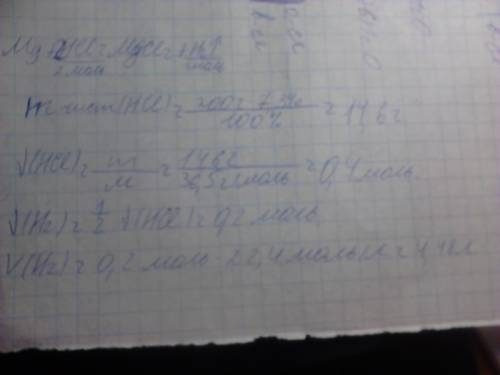 Mg 2HCl = MgCl₂ + H₂↑
2 моль 1 моль
m чист(HCl) = 200г · 7,3% / 100% = 14,6г
ν(HCl) = m / M = 14,6г / 36,5 г/моль = 0,4 моль
ν(H₂) = 1/2 ν(HCl) = 0,2 моль
V(H₂) = 0,2 моль · 22,4 моль/л = 4,48л